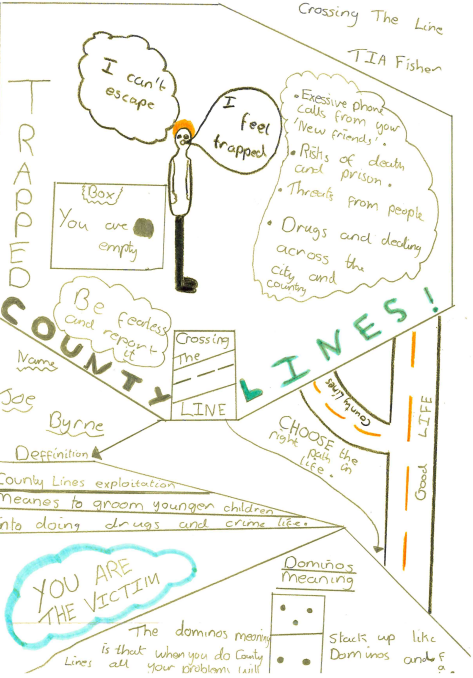 Crossing The Line
TIA Fisher
TRAPPED
I can't
escape
I
feel
trapped
• Exessive phone
calls from your
'New friends'.
• Risks of death
and prison.
• Threats from people
• Drugs and dealing
across the
city and
country
{Box}
You are
empty
Be fearless
and report
it
COUNTY
LINES!
Crossing
The
LINE
Name
Joe
Byrne
Deffinition
County Lines exploitation
Meanes to groom younger children
into doing drugs and crime life.
CHOOSE the
right path in
life.
County Lines
Good LIFE
YOU ARE
THE VICTIM
Dominos
Meaning
The dominos meaning
is that when you do County
Lines all your problems will
Stack up like
Dominos and